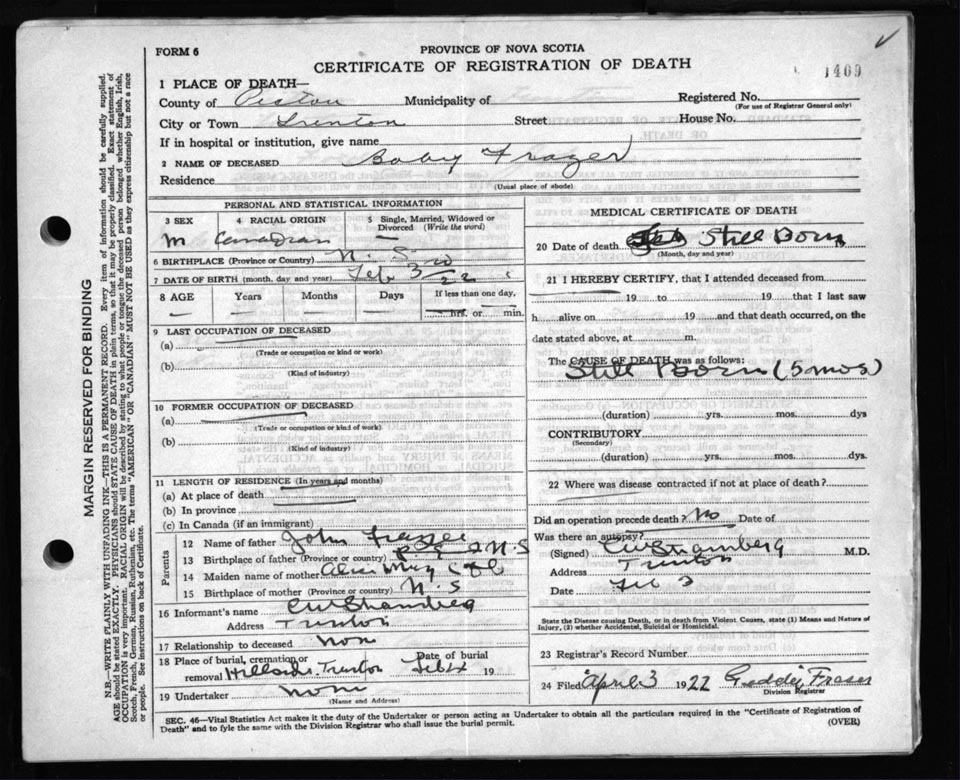 FORM 6
PROVINCE OF NOVA SCOTIA
CERTIFICATE OF REGISTRATION OF DEATH
1409
1 PLACE OF DEATH—
County of Pictou Municipality of Registered No.
(For use of Registrar General only)
City or Town Trenton Street House No.
If in hospital or institution, give name
2 NAME OF DECEASED Baby Frazer
Residence
(Usual place of abode)
PERSONAL AND STATISTICAL INFORMATION
3 SEX 4 RACIAL ORIGIN 5 Single, Married, Widowed or Divorced (Write the word)
m Canadian —
6 BIRTHPLACE (Province or Country) N.S.
7 DATE OF BIRTH (month, day and year) Feb 3/22
8 AGE Years Months Days If less than one day,
— — — — hrs. or min.
9 LAST OCCUPATION OF DECEASED
(a)
(Trade or occupation or kind or work)
(b)
(Kind of industry)
10 FORMER OCCUPATION OF DECEASED
(a)
(Trade or occupation or kind of work)
(b)
(Kind of industry)
11 LENGTH OF RESIDENCE (In years and months)
(a) At place of death
(b) In province
(c) In Canada (if an immigrant)
Parents
12 Name of father John
13 Birthplace of father (Province or country) N.S
14 Maiden name of mother May
15 Birthplace of mother (Province or country) N.S
16 Informant's name CW Stramberg
Address Trenton
17 Relationship to deceased non
18 Place of burial, cremation or removal Date of burial
Trenton 19
19 Undertaker non
(Name and Address)
MEDICAL CERTIFICATE OF DEATH
20 Date of death Still Born
(Month, day and year)
21 I HEREBY CERTIFY, that I attended deceased from
19 to 19 that I last saw
h alive on 19 and that death occurred, on the
date stated above, at m.
The CAUSE OF DEATH was as follows:
Still Born (5 mos)
(duration) yrs. mos. dys
CONTRIBUTORY
(Secondary)
(duration) yrs. mos. dys.
22 Where was disease contracted if not at place of death?
Did an operation precede death? No Date of
Was there an autopsy?
(Signed) CW Stramberg M.D.
Address Trenton
Date Feb 3
State the Disease causing Death, or in death from Violent Causes, state (1) Means and Nature of
Injury, (2) whether Accidental, Suicidal or Homicidal.
23 Registrar's Record Number
24 Filed April 3 1922 Fraser
Division Registrar
SEC. 46—Vital Statistics Act makes it the duty of the Undertaker or person acting as Undertaker to obtain all the particulars required in the "Certificate of Registration of
Death" and to fyle the same with the Division Registrar who shall issue the burial permit. (OVER)
MARGIN RESERVED FOR BINDING
N.B.—WRITE PLAINLY WITH UNFADING INK—THIS IS A PERMANENT RECORD. Every item of information should be carefully supplied.
AGE should be stated EXACTLY. PHYSICIANS should STATE CAUSE OF DEATH in plain terms, so that it may be properly classified. Exact statement of
OCCUPATION is very important. RACIAL ORIGIN will be described by stating to what people or tongue the deceased person belonged whether English, Irish,
Scotch, French, German, Russian, Ruthenian, etc. The terms "AMERICAN" OR "CANADIAN" MUST NOT BE USED as they express citizenship but not a race
or people. See instructions on back of Certificate.